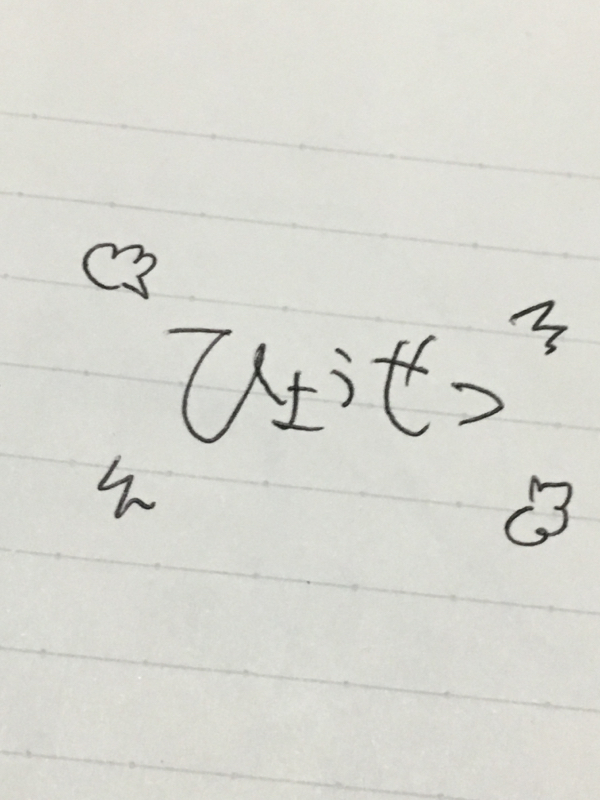 ひょうせつ